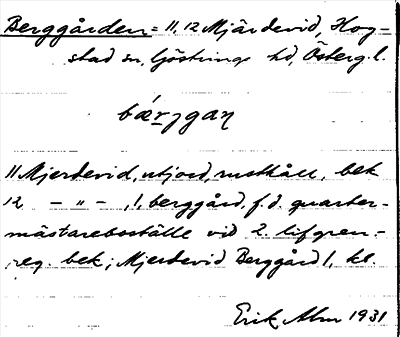 Berggården = 11, 12 Mjärdevid, Hog-
stad sn, Göstrings hd, Österg. l.
bærjgaṇ
11 Mjerdevid, utjord, rusthåll, bek
12 – " – , 1, berggård, f. d. quarter-
mästareboställe vid 2. lifgren.-
reg. bek; Mjerdevid Berggård 1, kl.
Erik Alm 1931